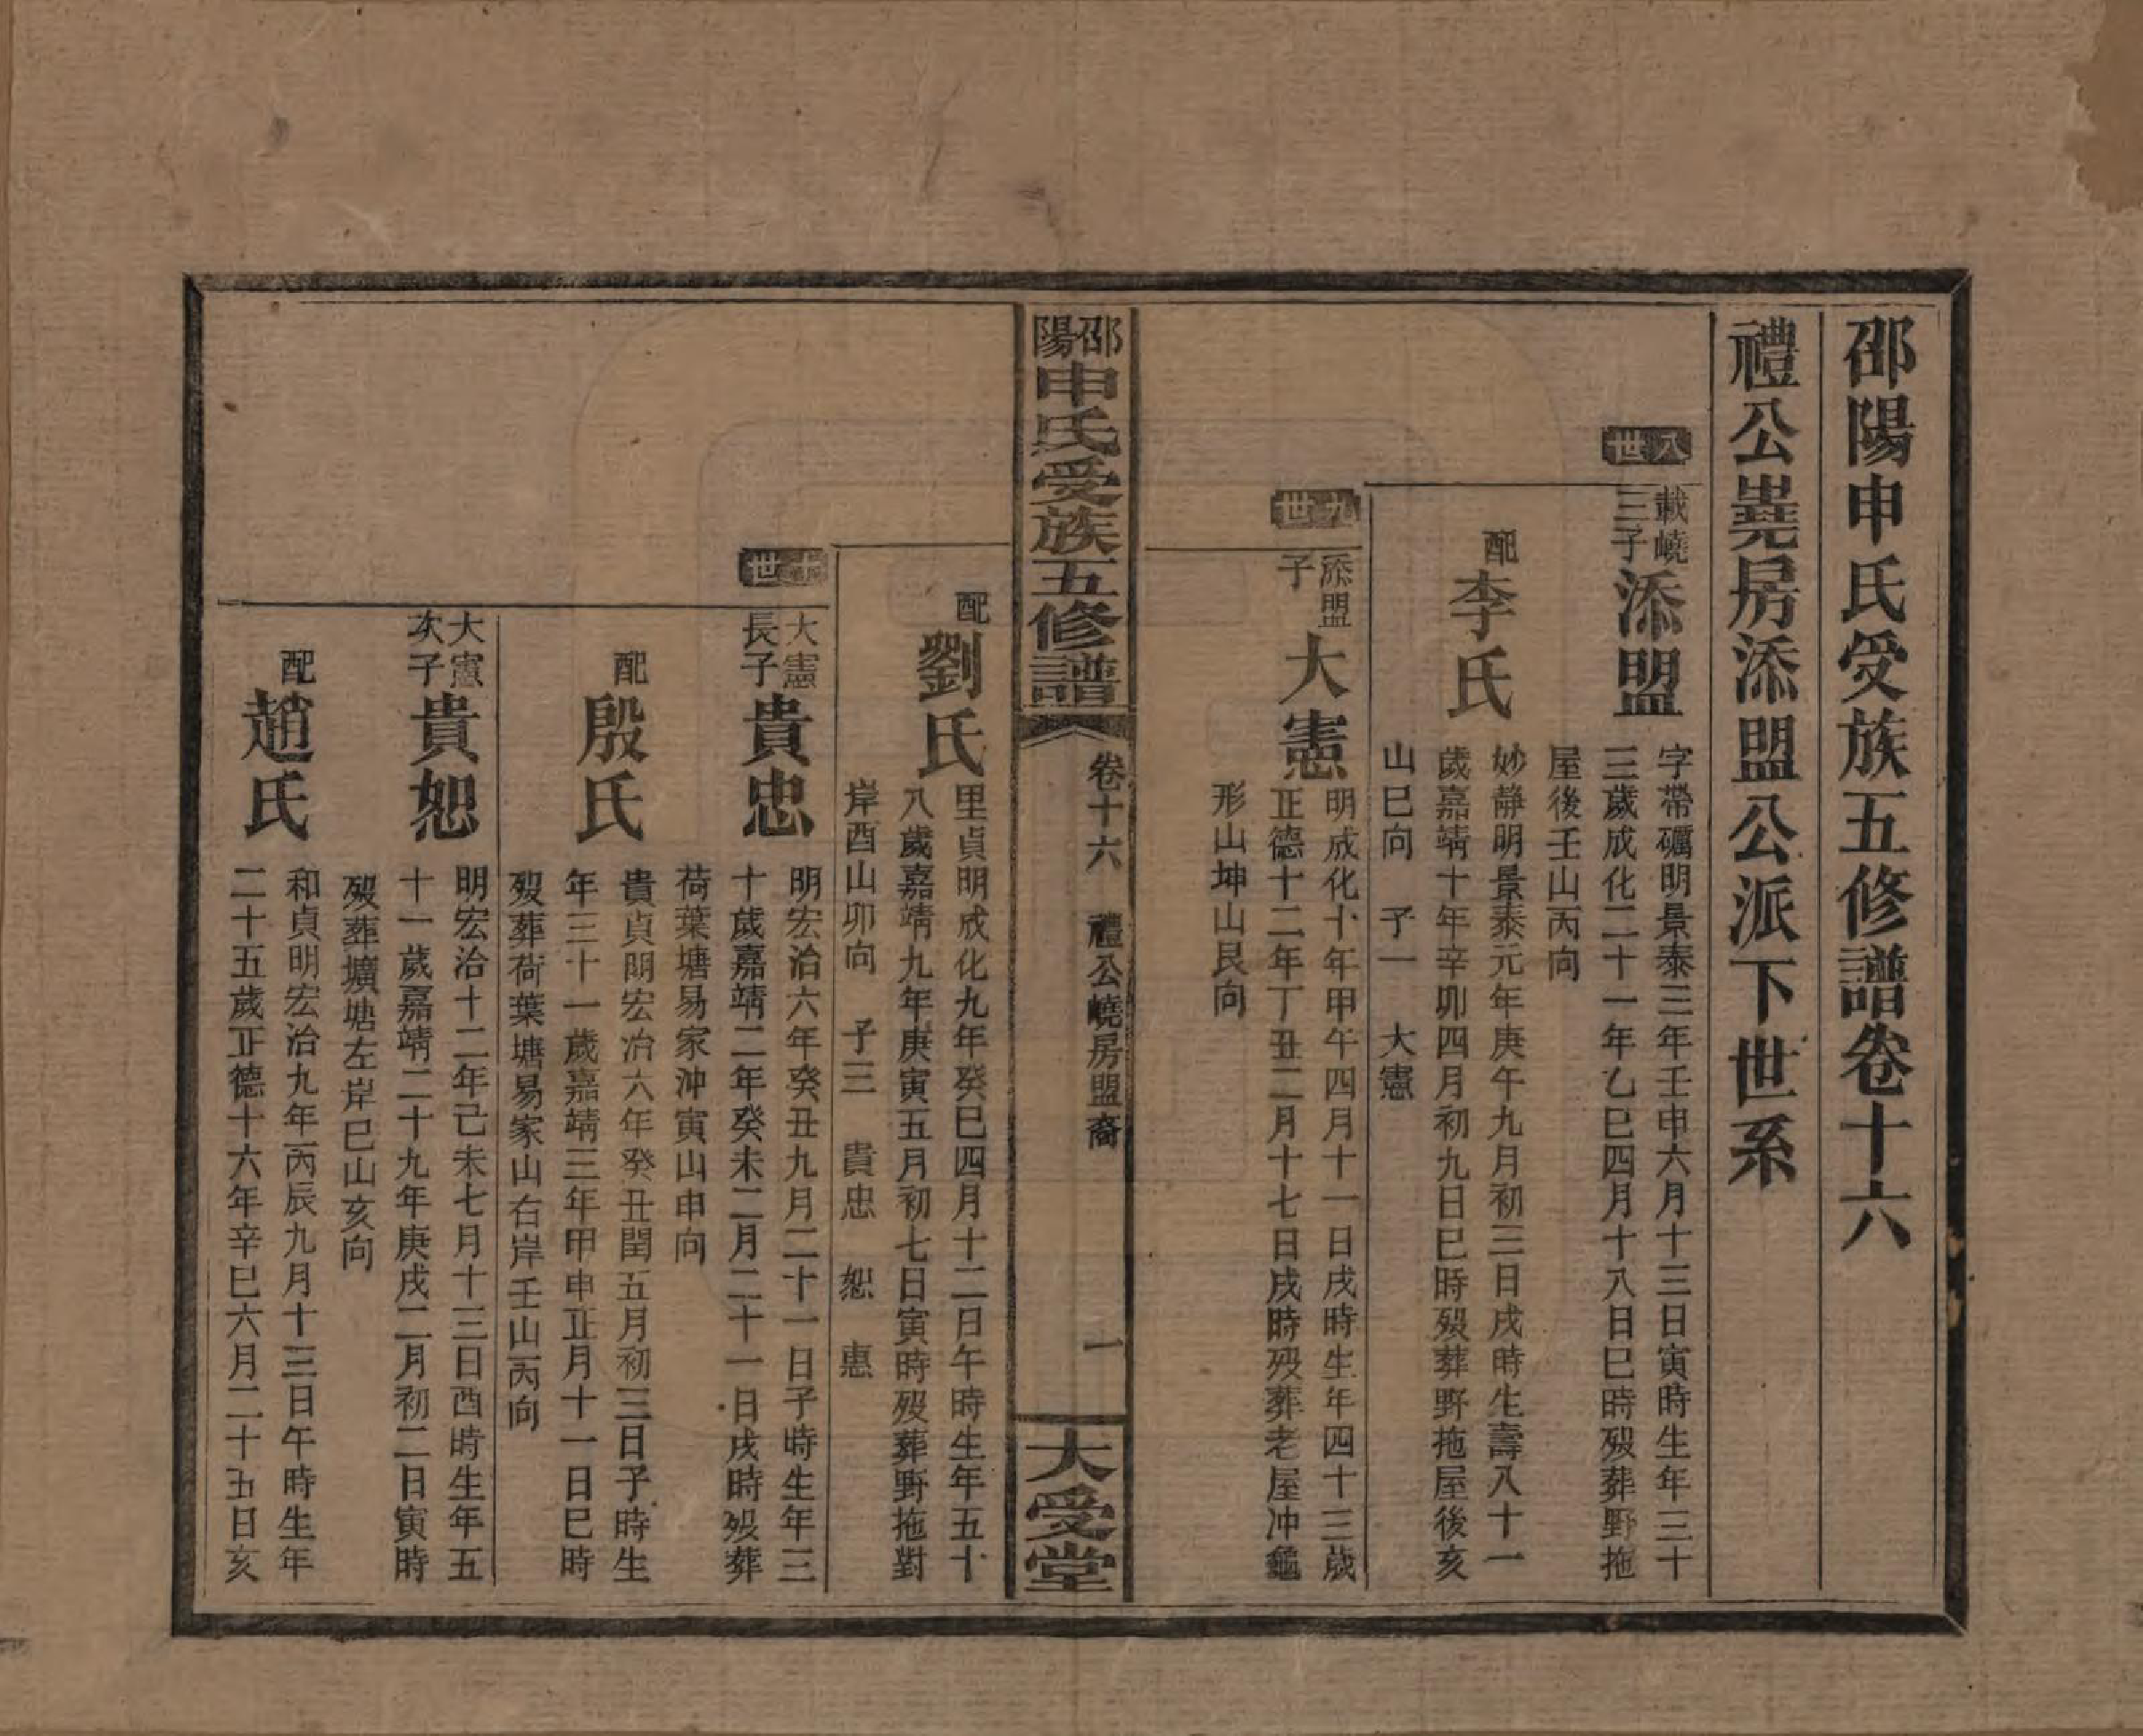 邵陽申氏受族五修譜卷十六
禮公嶤房添盟公派下世系
八世
載嶢三子
添盟
字帶礪明景泰三年壬申六月十三日寅時生年三十
三歲成化二十一年乙巳四月十八日巳時歿葬野拖
屋後壬山丙向
配
李氏
妙静明景泰元年庚午九月初三日戌時生壽八十一
歲嘉靖十年辛卯四月初九日巳時歿葬野拖屋後亥
山巳向 子一 大憲
九世
添盟子
大憲
明成化十年甲午四月十一日戌時生年四十三歲
正德十二年丁丑二月十七日戌時歿葬老屋冲龜
形山坤山艮向
邵陽申氏受族五修譜
卷十六 禮公嶢房盟裔
一
大受堂
配
劉氏
里貞明成化九年癸巳四月十二日午時生年五十
八歲嘉靖九年庚寅五月初七日寅時歿葬野拖對
岸酉山卯向 子三 貴忠 恕 惠
十世
大憲長子
貴忠
明宏治六年癸丑九月二十一日子時生年三
十歲嘉靖二年癸未二月二十一日戌時歿葬
荷葉塘易家冲寅山申向
配
殷氏
貴貞明宏治六年癸丑閏五月初三日子時生
年三十一歲嘉靖三年甲申正月十一日巳時
歿葬荷葉塘易家山右岸壬山丙向
大憲次子
貴恕
明宏治十二年己未七月十三日酉時生年五
十一歲嘉靖二十九年庚戌二月初二日寅時
歿葬壙塘左岸巳山亥向
配
趙氏
和貞明宏治九年丙辰九月十三日午時生年
二十五歲正德十六年辛巳六月二十五日亥